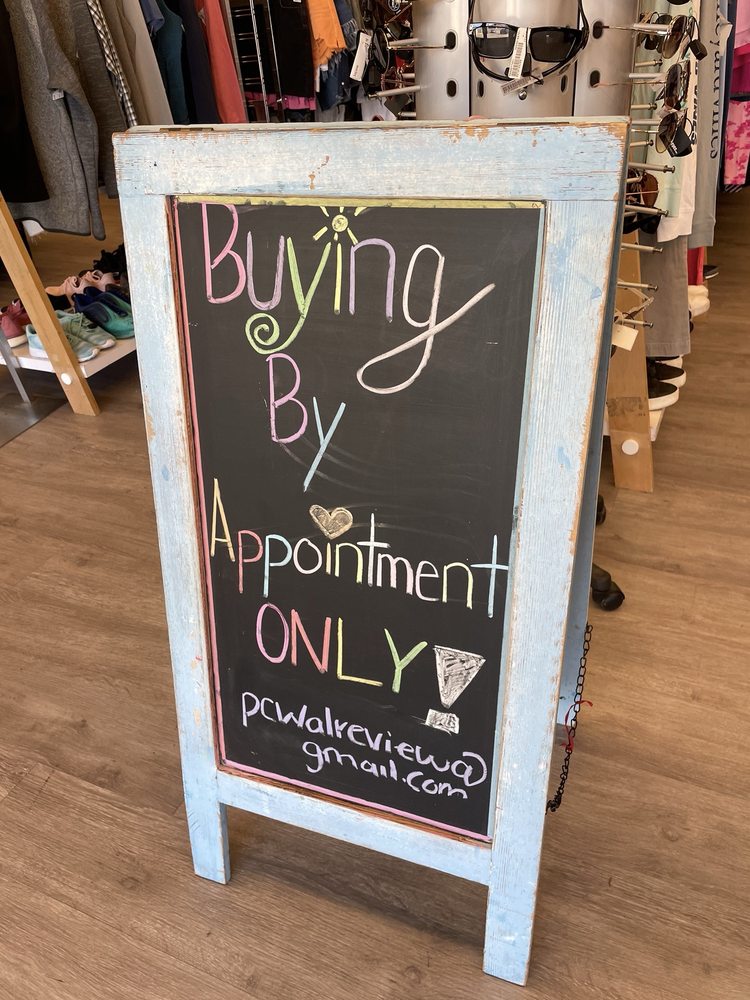 Buying
By
Appointment
ONLY!
pcwalreview@
gmail.com